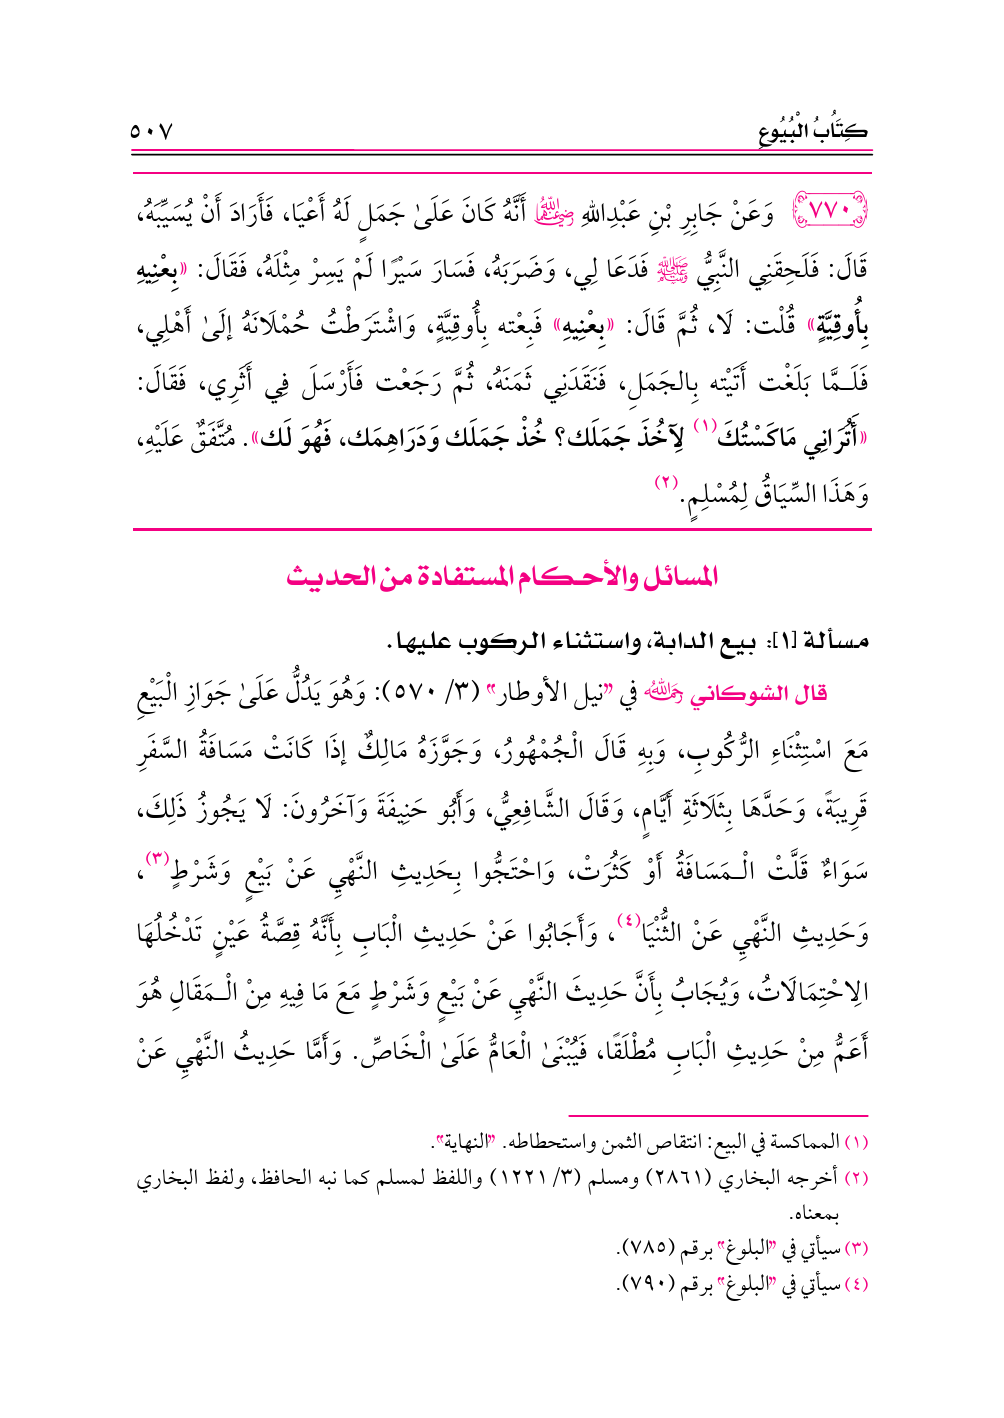 كِتَابُ الْبُيُوعِ ٥٠٧
٧٧٠ وَعَنْ جَابِرِ بْنِ عَبْدِاللهِ رضي الله عنه أَنَّهُ كَانَ عَلَىٰ جَمَلٍ لَهُ أَعْيَا، فَأَرَادَ أَنْ يُسَيِّبَهُ،
قَالَ: فَلَحِقَنِي النَّبِيُّ ﷺ فَدَعَا لِي، وَضَرَبَهُ، فَسَارَ سَيْرًا لَمْ يَسِرْ مِثْلَهُ، فَقَالَ: «بِعْنِيهِ
بِأُوقِيَّةٍ» قُلْت: لَا، ثُمَّ قَالَ: «بِعْنِيهِ» فَبِعْته بِأُوقِيَّةٍ، وَاشْتَرَطْتُ حُمْلَانَهُ إلَىٰ أَهْلِي،
فَلَـمَّا بَلَغْت أَتَيْته بِالجَمَلِ، فَنَقَدَنِي ثَمَنَهُ، ثُمَّ رَجَعْت فَأَرْسَلَ فِي أَثَرِي، فَقَالَ:
«أَتُرَانِي مَاكَسْتُكَ(١) لِآخُذَ جَمَلَك؟ خُذْ جَمَلَك وَدَرَاهِمَك، فَهُوَ لَك». مُتَّفَقٌ عَلَيْهِ،
وَهَذَا السِّيَاقُ لِمُسْلِمٍ.(٢)
المسائل والأحكام المستفادة من الحديث
مسألة [١]: بيع الدابة، واستثناء الركوب عليها.
قال الشوكاني رحمه الله في "نيل الأوطار" (٣/ ٥٧٠): وَهُوَ يَدُلُّ عَلَىٰ جَوَازِ الْبَيْعِ
مَعَ اسْتِثْنَاءِ الرُّكُوبِ، وَبِهِ قَالَ الْجُمْهُورُ، وَجَوَّزَهُ مَالِكٌ إذَا كَانَتْ مَسَافَةُ السَّفَرِ
قَرِيبَةً، وَحَدَّهَا بِثَلَاثَةِ أَيَّامٍ، وَقَالَ الشَّافِعِيُّ، وَأَبُو حَنِيفَةَ وَآخَرُونَ: لَا يَجُوزُ ذَلِكَ،
سَوَاءٌ قَلَّتْ الْـمَسَافَةُ أَوْ كَثُرَتْ، وَاحْتَجُّوا بِحَدِيثِ النَّهْيِ عَنْ بَيْعٍ وَشَرْطٍ(٣)،
وَحَدِيثِ النَّهْيِ عَنْ الثُّنْيَا(٤)، وَأَجَابُوا عَنْ حَدِيثِ الْبَابِ بِأَنَّهُ قِصَّةُ عَيْنٍ تَدْخُلُهَا
الِاحْتِمَالَاتُ، وَيُجَابُ بِأَنَّ حَدِيثَ النَّهْيِ عَنْ بَيْعٍ وَشَرْطٍ مَعَ مَا فِيهِ مِنْ الْـمَقَالِ هُوَ
أَعَمُّ مِنْ حَدِيثِ الْبَابِ مُطْلَقًا، فَيُبْنَىٰ الْعَامُّ عَلَىٰ الْخَاصِّ. وَأَمَّا حَدِيثُ النَّهْيِ عَنْ
(١) المماكسة في البيع: انتقاص الثمن واستحطاطه. "النهاية".
(٢) أخرجه البخاري (٢٨٦١) ومسلم (٣/ ١٢٢١) واللفظ لمسلم كما نبه الحافظ، ولفظ البخاري
بمعناه.
(٣) سيأتي في "البلوغ" برقم (٧٨٥).
(٤) سيأتي في "البلوغ" برقم (٧٩٠).